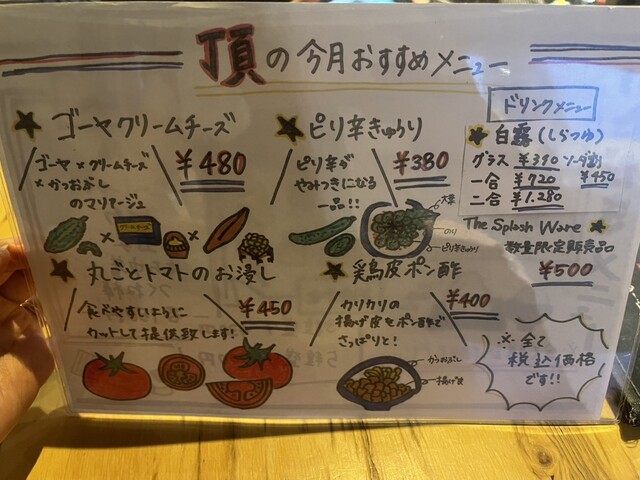 頂の今月おすすめメニュー
ゴーヤクリームチーズ
ゴーヤ×クリームチーズ
×かつおぶし
のマリアージュ
¥480
クリームチーズ
ピリ辛きゅうり
ピリ辛が
やみつきになる
一品!!
¥380
大葉
のり
ピリ辛きゅうり
ドリンクメニュー
白露(しらつゆ)
グラス ¥390 ソーダ割
¥450
一合 ¥720
二合 ¥1.280
The Splash Wave
数量限定販売品
¥500
丸ごとトマトのお浸し
食べやすいように
カットして提供致します!
¥450
鶏皮ポン酢
カリカリの
揚げ皮をポン酢で
さっぱりと!
¥400
かつおぶし
揚げ皮
※全て
税込価格
です!!